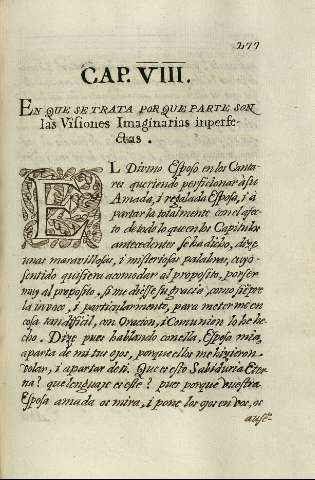 277
CAP. VIII.
EN QUE SE TRATA POR QUE PARTE SON
las Visiones Imaginarias inperfe-
ctas.
EL Divino Esposo en los Canta-
res queriendo perficionar à su
Amada, i regalada Esposa, i à
partarla totalmente con el afec-
to de todo lo que en los Capitulos
antecedentes se ha dicho, dize
unas maravillosas, i misteriosas palabras, cuyo
sentido quisiera acomodar al proposito, por ser
muy al proposito, si me diesse su gracia, como siempre
la invoco, i particularmente, para meterme en
cosa tan dificil, con Oracion, i Comunion lo he he-
cho. Dize pues hablando con ella, Esposa mia,
aparta de mi tus ojos, porque ellos me hizieron
volar, i apartar de ti. Que es esto Sabiduria Eter-
na? que lenguaje es esse? pues porque vuestra
Esposa amada os mira, i pone los ojos en vos, os